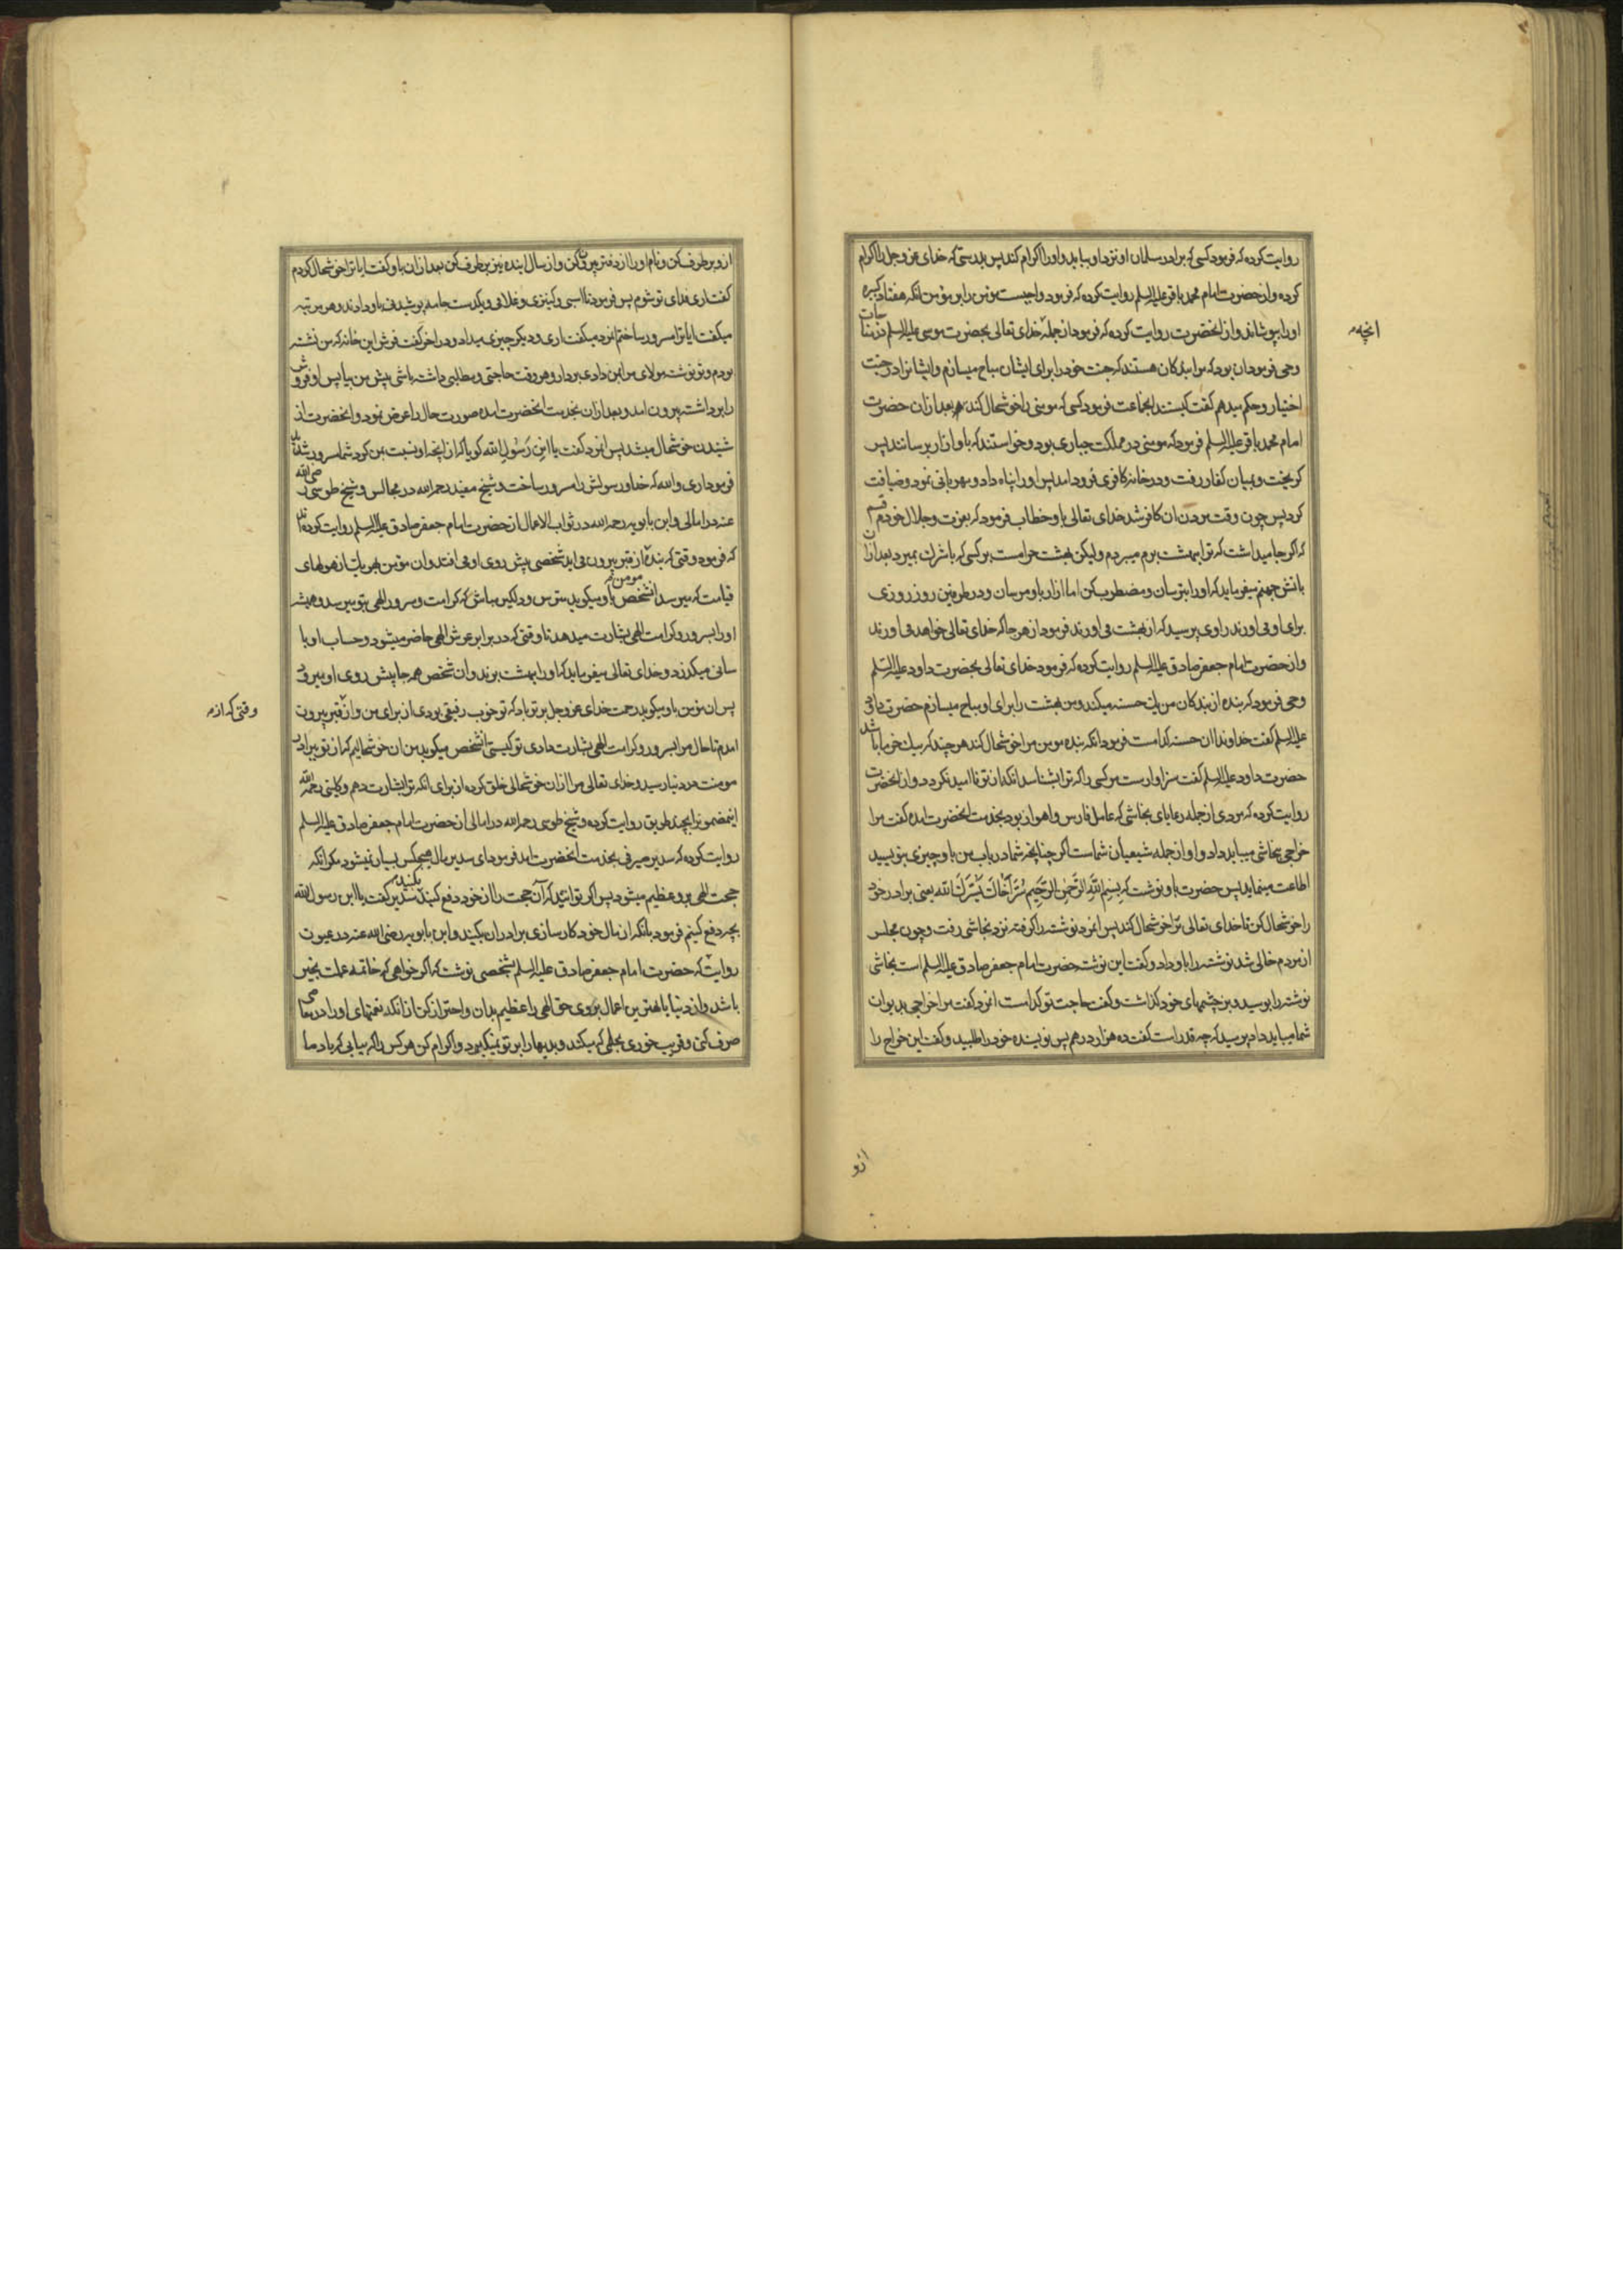 روایت کرده که فرمود کسی که برادر مسلمان او نزد او بیاید و او را اکرام کند پس بدرستی که خدای عز و جل را اکرام
کرده و از حضرت امام محمد باقر علیه السلم روایت کرده که فرمود واجبست مؤمن را بر مؤمن انکه هفتاد کبیره
او را بپوشاند و از انحضرت روایت کرده که فرمود از جمله خدای تعالی بحضرت موسی علیه السلم در مناجات
انچه
وحی فرمود ان بود که مرا بندکان هستند که جنت خود را برای ایشان مباح میسازم و ایشانرا در جنت
اختیار و حکم میدهم گفت کیستند انجماعت فرمود کسی که مومنی را خوشحال کند بعد ازان حضرت
امام محمد باقر علیه السلم فرمود که مومنی در مملکت جباری بود و خواستند که باو ازار برسانند پس
کریخت و بمیان کفار رفت و در خانه کافری فرود امد پس او را پناه داد و مهربانی نمود و ضیافت
کرد پس چون وقت مردن ان کافر شد خدای تعالی باو خطاب فرمود که بعزت و جلال خودم قسم
که اکر جا میداشت که ترا ببهشت برم میبردم و لیکن بهشت حرامست بر کسی که با شرک بمیرد بعد ازان
باتش جهنم میفرماید که او را بترسان و مضطرب کن اما ازار باو مرسان و در طرفین روز روزی
برای او می اورند راوی پرسید که از بهشت می اورند فرمود از هر جا که خدای تعالی خواهد می اورند
و از حضرت امام جعفر صادق علیه السلم روایت کرده که فرمود خدای تعالی بحضرت داود علیه السلم
وحی فرمود که بنده از بندکان من یک حسنه میکند و من بهشت را برای او مباح میسازم حضرت داود
علیه السلم گفت خداوندا ان حسنه کدامست فرمود انکه بنده مومن مرا خوشحال کند هر چند که بیک خرما باشد
حضرت داود علیه السلم گفت سزاوارست مر کسی را که ترا بشناسد انکه از تو ناامید نکردد و از انحضرت
روایت کرده که مردی از جمله رعایای نجاشی که عامل فارس و اهواز بود بخدمت انحضرت امده گفت مرا
خراجی بنجاشی میباید داد و او از جمله شیعیان شماست اکر چنانچه شما در باب من باو چیزی بنویسید
اطاعت مینماید پس حضرت باو نوشت که بسم الله الرحمن الرحیم سر اخاک یسرک الله یعنی برادر خود
را خوشحال کن تا خدای تعالی ترا خوشحال کند پس انمرد نوشته را کرفته نزد نجاشی رفت و چون مجلس
از مردم خالی شد نوشته را باو داد و گفت این نوشته حضرت امام جعفر صادق علیه السلم است نجاشی
نوشته را بوسید و بر چشمهای خود کذاشت و گفت حاجت تو کدامست انمرد گفت مرا خراجی بدیوان
شما میباید داد پرسید که چه قدر است گفت ده هزار درهم پس نویسنده خود را طلبید و گفت این خراج را
ازو
ازو برطرف کن و نام او را از دفتر بیرون کن و از سال اینده نیز برطرف کن بعد ازان باو گفت ایا ترا خوشحال کردم
گفت اری فدای تو شوم پس فرمود تا اسبی و کنیزی و غلامی و یکدست جامه پوشیدنی باو دادند و هر مرتبه
میگفت ایا ترا مسرور ساختم انمرد میگفت اری و دیکر چیزی میداد و در اخر گفت فرش این خانه که من نشسته
بودم و تو نوشته مولای مرا بمن دادی بردار و هر وقت حاجتی و مطلبی داشته باشی پیش من بیا پس او فرش
را برداشته بیرون امد و بعد ازان بخدمت انحضرت امده صورت حال را عرض نمود و انحضرت از
شنیدن خوشحال میشد پس انمرد گفت یا ابن رسول الله کویا که از انچه او نسبت بمن کرد شما مسرور شدید
فرمود اری والله که خدا و رسولش را مسرور ساخت و شیخ مفید رحمه الله در مجالس و شیخ طوسی رضی الله
عنه در امالی و ابن بابویه رحمه الله در ثواب الاعمال از حضرت امام جعفر صادق علیه السلم روایت کرده اند
که فرمود وقتی که بنده از قبر بیرون می اید شخصی پیش روی او می افتد و ان مؤمن بهر یک از هولهای
قیامت که میرسد انشخص باو میکوید مترس و دلکیر مباش که کرامت و سرور الهی بتو میرسد و همیشه
مومن
او را بسرور و کرامت الهی بشارت میدهد تا وقتی که در برابر عرش الهی حاضر میشود و حساب او با
سانی میکذرد و خدای تعالی میفرماید که او را ببهشت برند و ان شخص همه جا پیش روی او میرود
پس ان مؤمن باو میکوید رحمت خدای عز و جل بر تو باد که تو خوب رفیقی بودی از برای من و از قبر بیرون
وقتی که از
امدم تا حال مرا بسرور و کرامت الهی بشارت دادی تو کیستی انشخص میکوید من ان خوشحالیم که از تو ببرادر
مومنت در دنیا رسید و خدای تعالی مرا ازان خوشحالی خلق کرده از برای انکه ترا بشارت دهم و کلینی رحمه الله
اینمضمونرا بچند طریق روایت کرده و شیخ طوسی رحمه الله در امالی از حضرت امام جعفر صادق علیه السلم
روایت کرده که سدیر صیرفی بخدمت انحضرت امد فرمود ای سدیر مال هیچکس بسیار نمیشود مکر انکه
حجت الهی برو عظیم میشود پس اکر توانید که آن حجت را از خود دفع کنید بکنید سدیر گفت یا ابن رسول الله
بچه دفع کنیم فرمود بانکه از مال خود کارسازی برادران بکنید و ابن بابویه رضی الله عنه در عیون
روایت که حضرت امام جعفر صادق علیه السلم بشخصی نوشت که اکر خواهی که خاتمه عملت بخیر
باشد و از دنیا با بهترین اعمال بروی حق الهی را عظیم بدان و احتراز کن از انکه نعمتهای او را در معاصی
صرف کنی و فریب خوری بحلمی که میکند و بدیها را بر تو نمیکیرد و اکرام کن هر کس را که بیابی که یاد ما